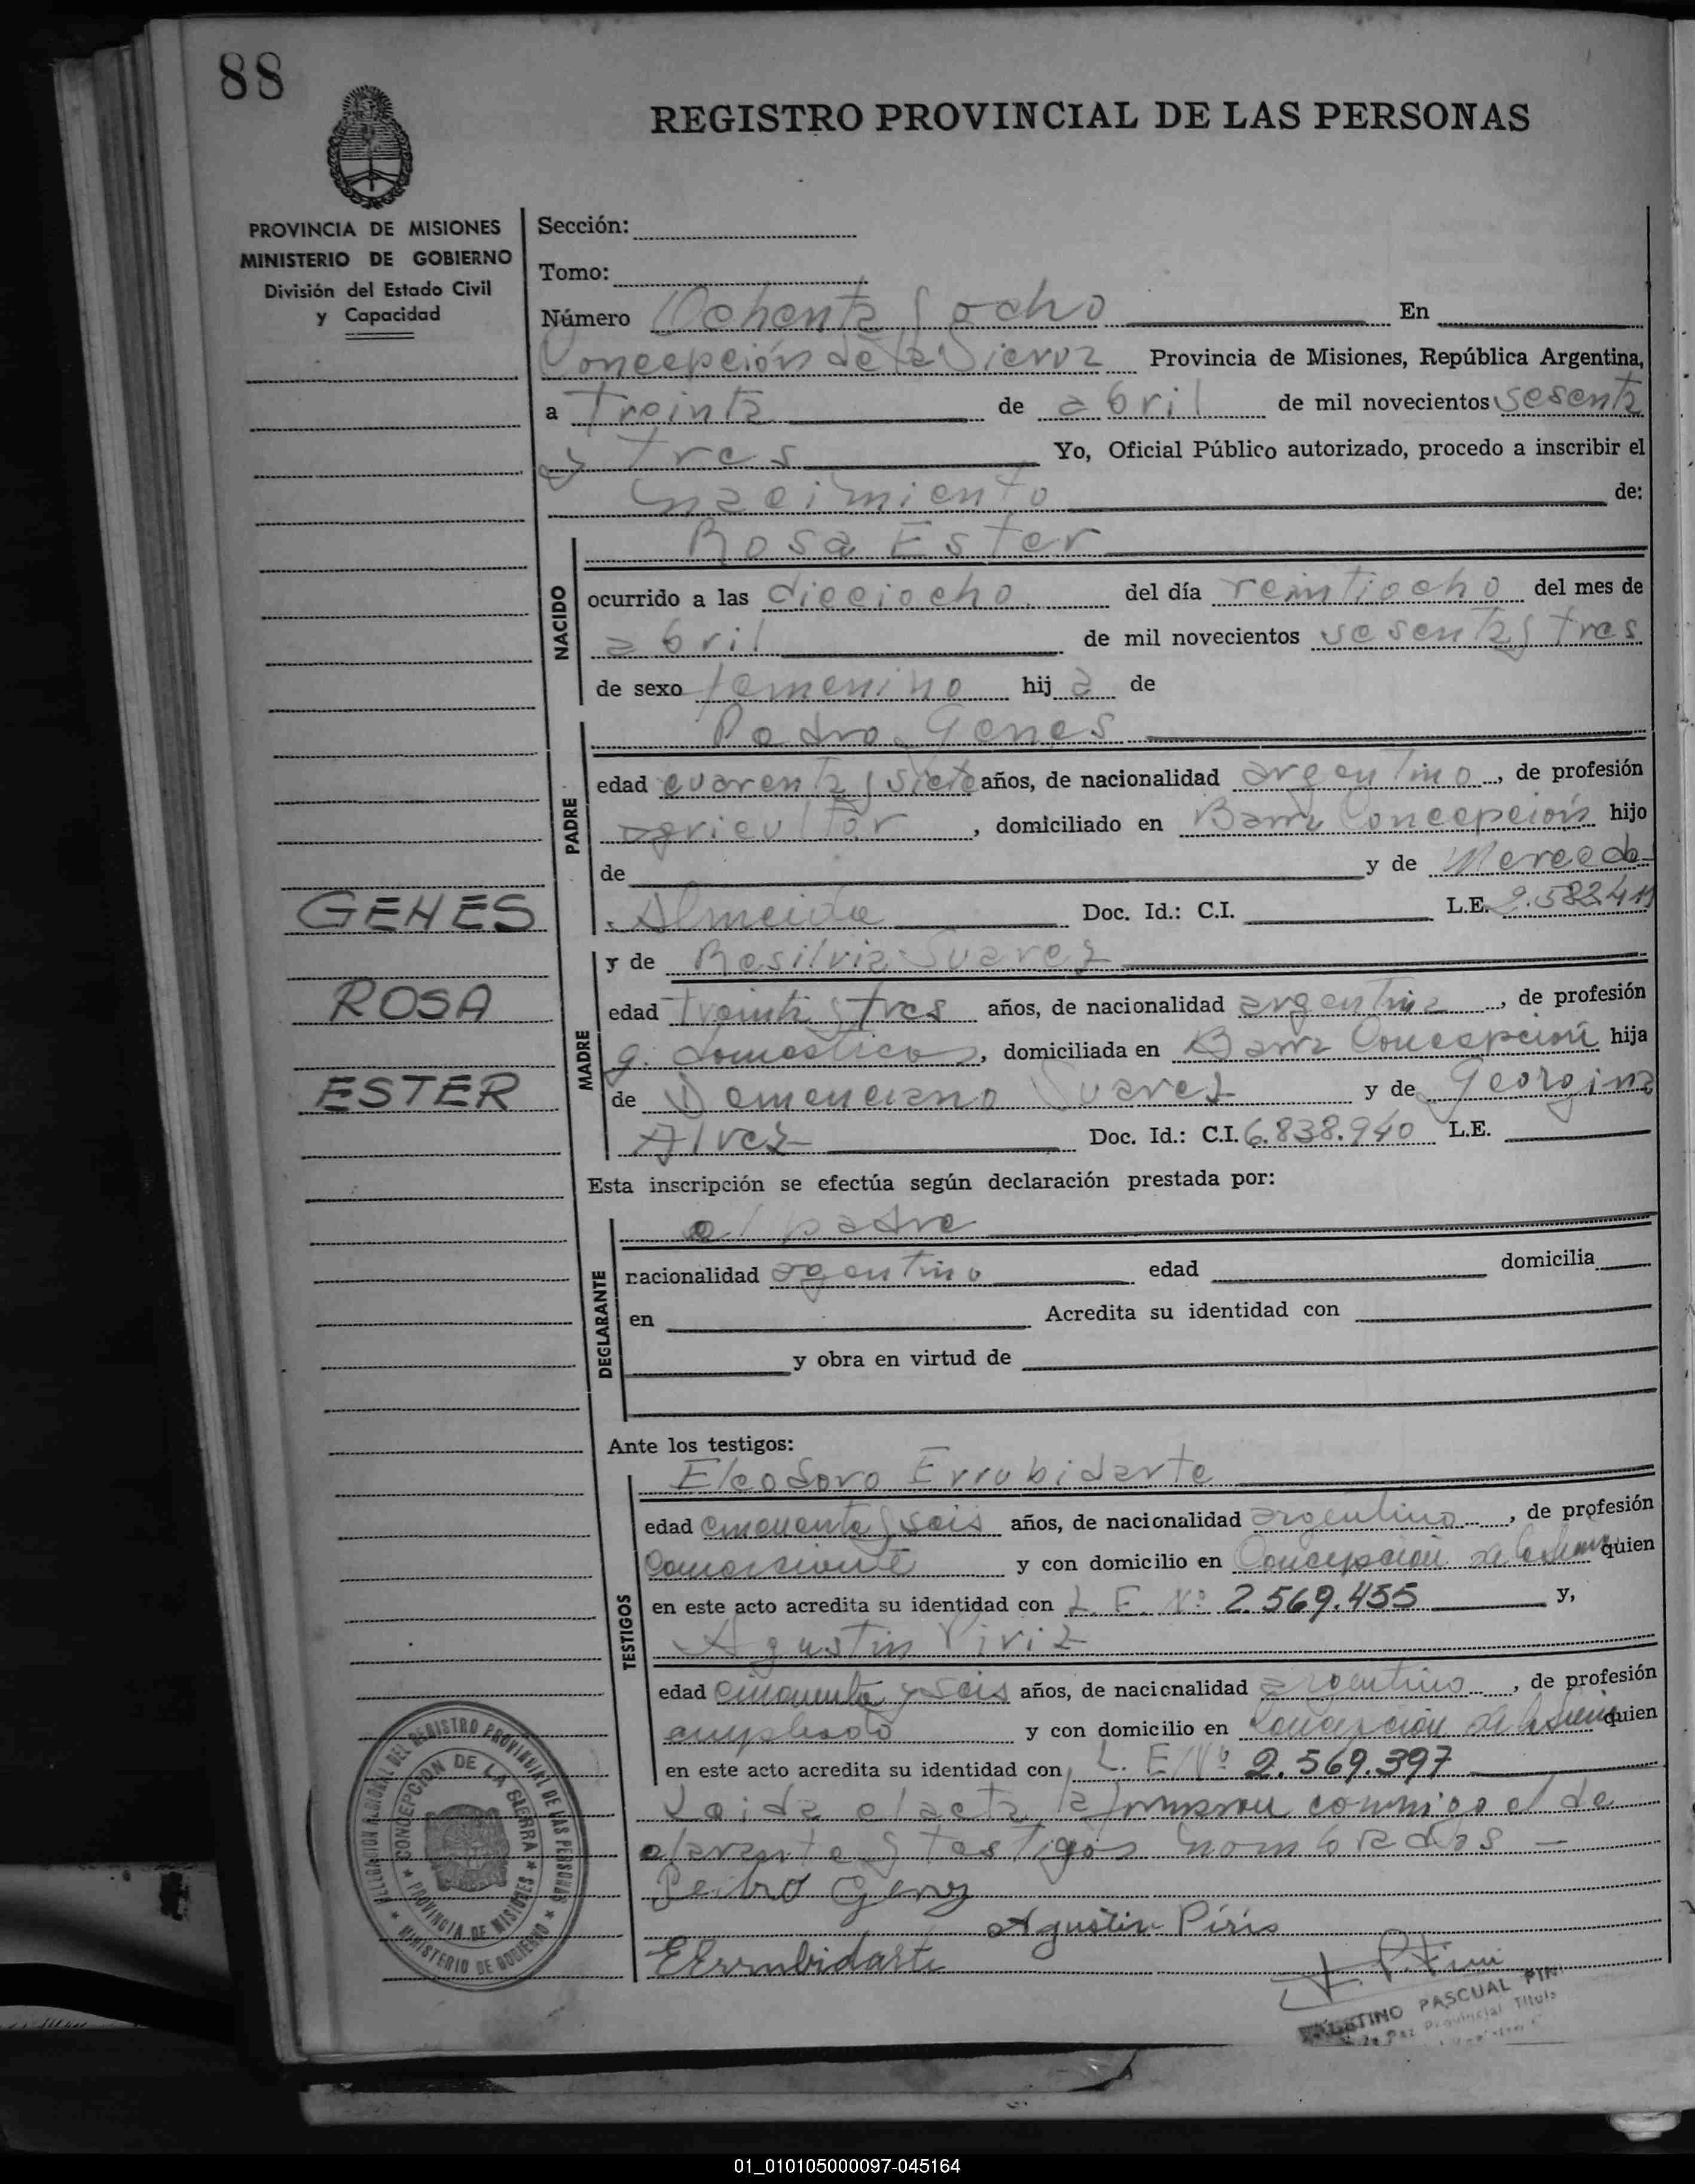 88
REGISTRO PROVINCIAL DE LAS PERSONAS
PROVINCIA DE MISIONES
MINISTERIO DE GOBIERNO
División del Estado Civil
y Capacidad
Sección:
Tomo:
Número Ochenta y ocho En
Concepción de la Sierra Provincia de Misiones, República Argentina,
a treinta de abril de mil novecientos sesenta
y tres Yo, Oficial Público autorizado, procedo a inscribir el
nacimiento de:
NACIDO
Rosa Ester
ocurrido a las dieciocho del día veintiocho del mes de
abril de mil novecientos sesenta y tres
de sexo femenino hija de
PADRE
Pedro Genes
edad cuarenta y siete años, de nacionalidad argentino, de profesión
agricultor, domiciliado en Barra Concepción hijo
de y de Mercede
Almeida Doc. Id.: C.I. L.E. 2.582.411
GENES
ROSA
ESTER
MADRE
y de Basilvia Suarez
edad treinta y tres años, de nacionalidad argentina, de profesión
q. domesticos, domiciliada en Barra Concepción hija
de Demenciano Suarez y de Georgina
Alvez Doc. Id.: C.I. 6.838.940 L.E.
Esta inscripción se efectúa según declaración prestada por:
DECLARANTE
el padre
nacionalidad agentino edad domicilia
en Acredita su identidad con
y obra en virtud de
Ante los testigos:
TESTIGOS
Eleodoro Errubidarte
edad cincuenta y seis años, de nacionalidad argentino, de profesión
comerciante y con domicilio en Concepción de la Sierra quien
en este acto acredita su identidad con L. E. Nº 2.569.455 y,
Agustin Piriz
edad cincuenta y seis años, de nacionalidad argentino, de profesión
empleado y con domicilio en Concepción de la Sierra quien
en este acto acredita su identidad con L. E. Nº 2.569.397
Leida el acta la firmaron conmigo el de
clarante y testigos nombrados
Pedro Genez
Agustin Piris
EErrubidarte
DELEGACION REGIONAL DEL REGISTRO PROVINCIAL DE LAS PERSONAS
CONCEPCION DE LA SIERRA
PROVINCIA DE MISIONES
MINISTERIO DE GOBIERNO
PASCUAL PINI
de Paz Provincial Titula
01_010105000097-045164